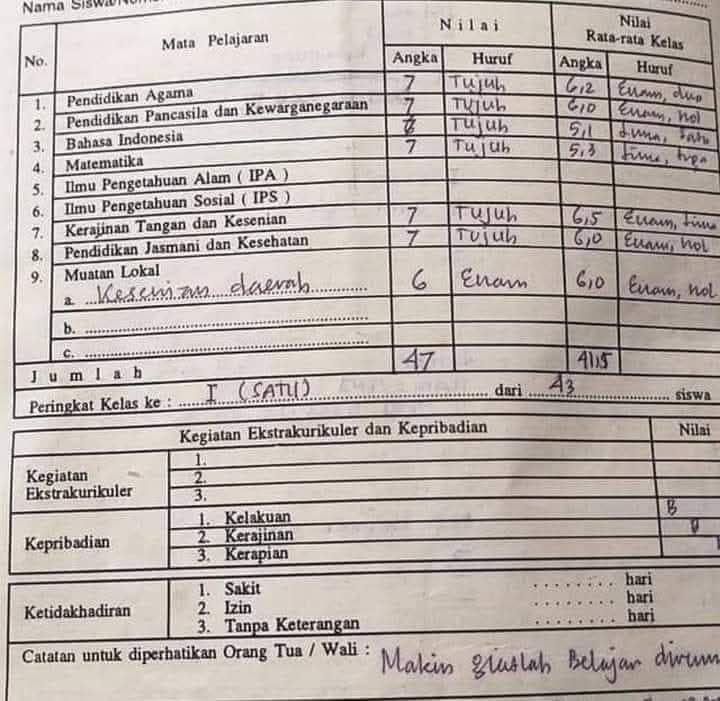 Nama Siswa/Nomor
No. Mata Pelajaran Nilai Nilai Rata-rata Kelas
Angka Huruf Angka Huruf
1. Pendidikan Agama 7 Tujuh 6,2 Enam, dua
2. Pendidikan Pancasila dan Kewarganegaraan 7 Tujuh 6,0 Enam, nol
3. Bahasa Indonesia Tujuh 5,1 Lima, Satu
4. Matematika 7 Tujuh 5,3 Lima, tiga
5. Ilmu Pengetahuan Alam ( IPA )
6. Ilmu Pengetahuan Sosial ( IPS )
7. Kerajinan Tangan dan Kesenian 7 Tujuh 6,5 Enam, lima
8. Pendidikan Jasmani dan Kesehatan 7 Tujuh 6,0 Enam, nol
9. Muatan Lokal
a. Kesenian daerah 6 Enam 6,0 Enam, nol
b.
c.
Jumlah 47 41,5
Peringkat Kelas ke : I (SATU) dari 43 siswa
Kegiatan Ekstrakurikuler dan Kepribadian Nilai
Kegiatan Ekstrakurikuler 1.
2.
3.
Kepribadian 1. Kelakuan B
2. Kerajinan
3. Kerapian
Ketidakhadiran 1. Sakit ........ hari
2. Izin ........ hari
3. Tanpa Keterangan ........ hari
Catatan untuk diperhatikan Orang Tua / Wali : Makin giatlah Belajar dirum